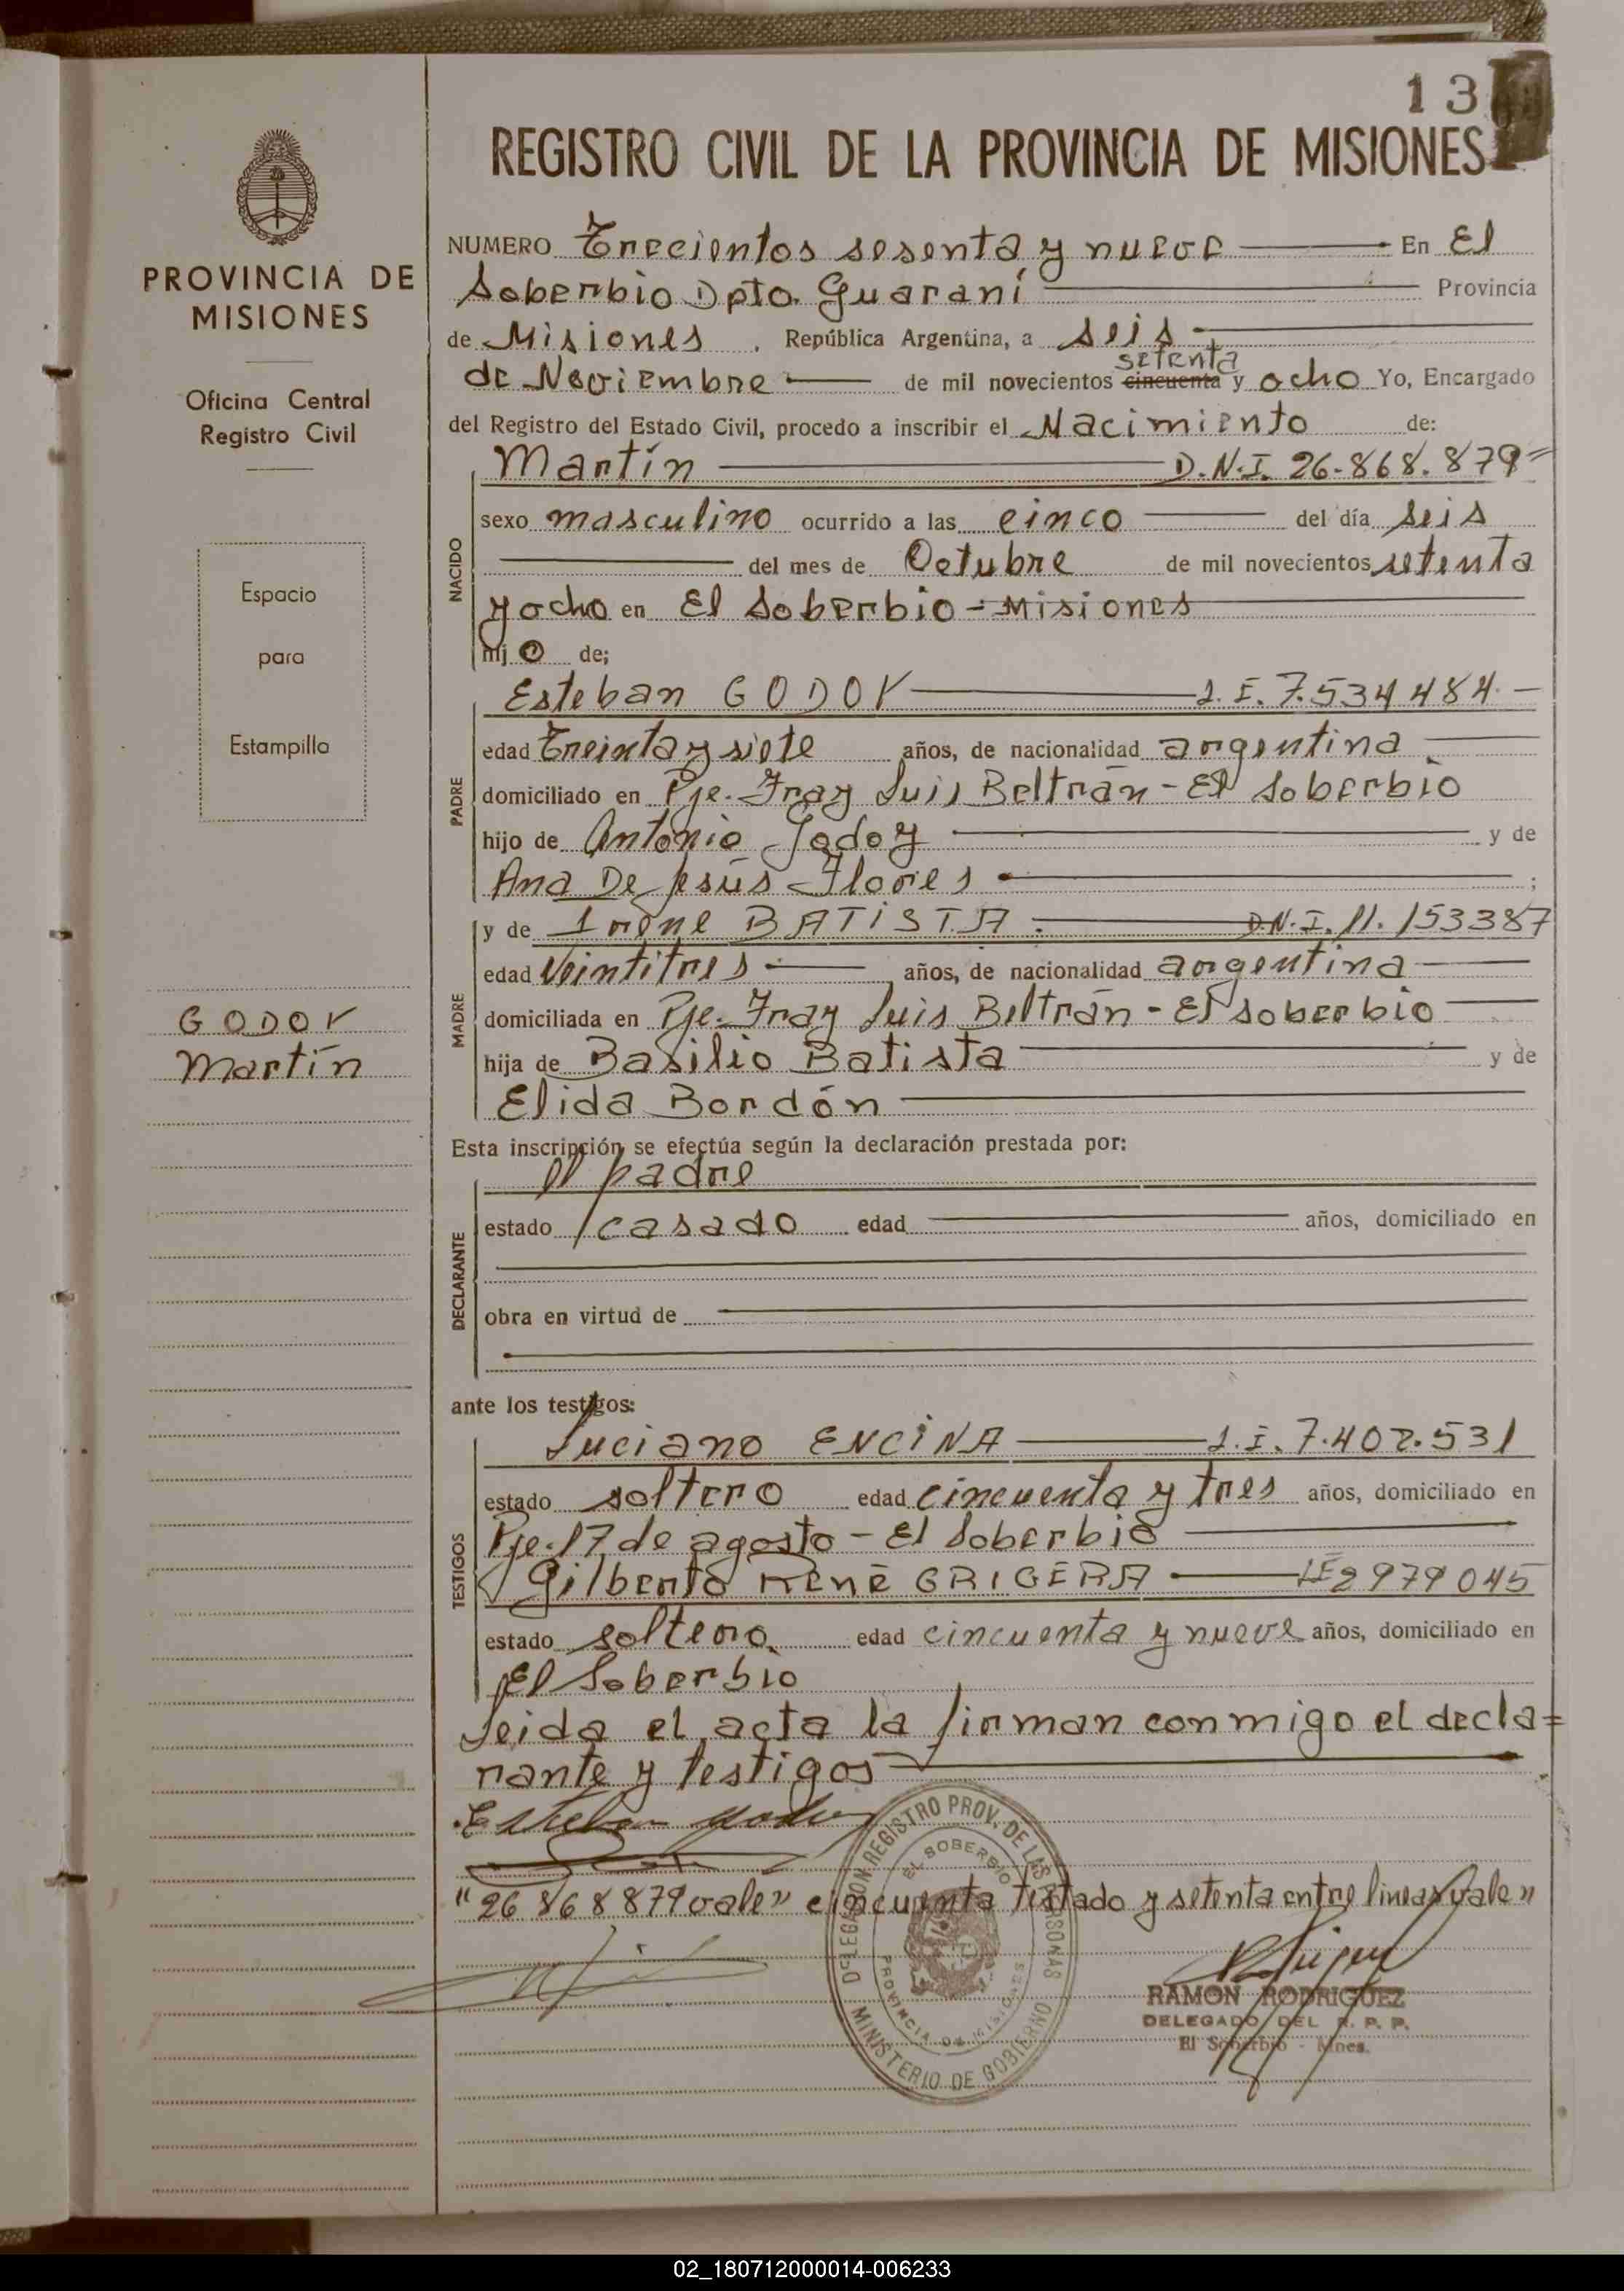 13
REGISTRO CIVIL DE LA PROVINCIA DE MISIONES
PROVINCIA DE
MISIONES
Oficina Central
Registro Civil
Espacio
para
Estampilla
GODOY
Martín
NUMERO Trecientos sesenta y nueve En El
Soberbio Dpto. Guaraní Provincia
de Misiones . República Argentina, a seis
setenta
de Noviembre de mil novecientos cincuenta y ocho Yo, Encargado
del Registro del Estado Civil, procedo a inscribir el Nacimiento de:
Martín D.N.I. 26.868.879=
NACIDO
sexo masculino ocurrido a las cinco del día seis
del mes de Octubre de mil novecientos setenta
y ocho en El Soberbio - Misiones
hij o de;
Esteban GODOY L.E. 7.534484.
PADRE
edad Treinta y siete años, de nacionalidad argentina
domiciliado en Pje. Fray Luis Beltrán - El Soberbio
hijo de Antonio Godoy y de
Ana De Jesús Flores ;
y de Irene BATISTA. D.N.I. 11.153387
MADRE
edad Veintitres años, de nacionalidad argentina
domiciliada en Pje. Fray Luis Beltrán - El Soberbio
hija de Basilio Batista y de
Elida Bordón
Esta inscripción se efectúa según la declaración prestada por:
el padre
DECLARANTE
estado casado edad años, domiciliado en
obra en virtud de
ante los testigos:
Luciano ENCINA L.E. 7.402.531
TESTIGOS
estado soltero edad cincuenta y tres años, domiciliado en
Pje. 17 de agosto - El Soberbio
Gilberto René GRIGERA LE 2979045
estado soltero edad cincuenta y nueve años, domiciliado en
El Soberbio
Leida el acta la firman conmigo el decla=
rante y testigos
Esteban Godoy
"26868879 vale" cincuenta testado y setenta entre lineas vale"
DELEGACION REGISTRO PROV. DE LAS PERSONAS
EL SOBERBIO
PROVINCIA DE MISIONES
MINISTERIO DE GOBIERNO
RAMON RODRIGUEZ
DELEGADO DEL R. P. P.
El Soberbio - Mnes.
02_180712000014-006233